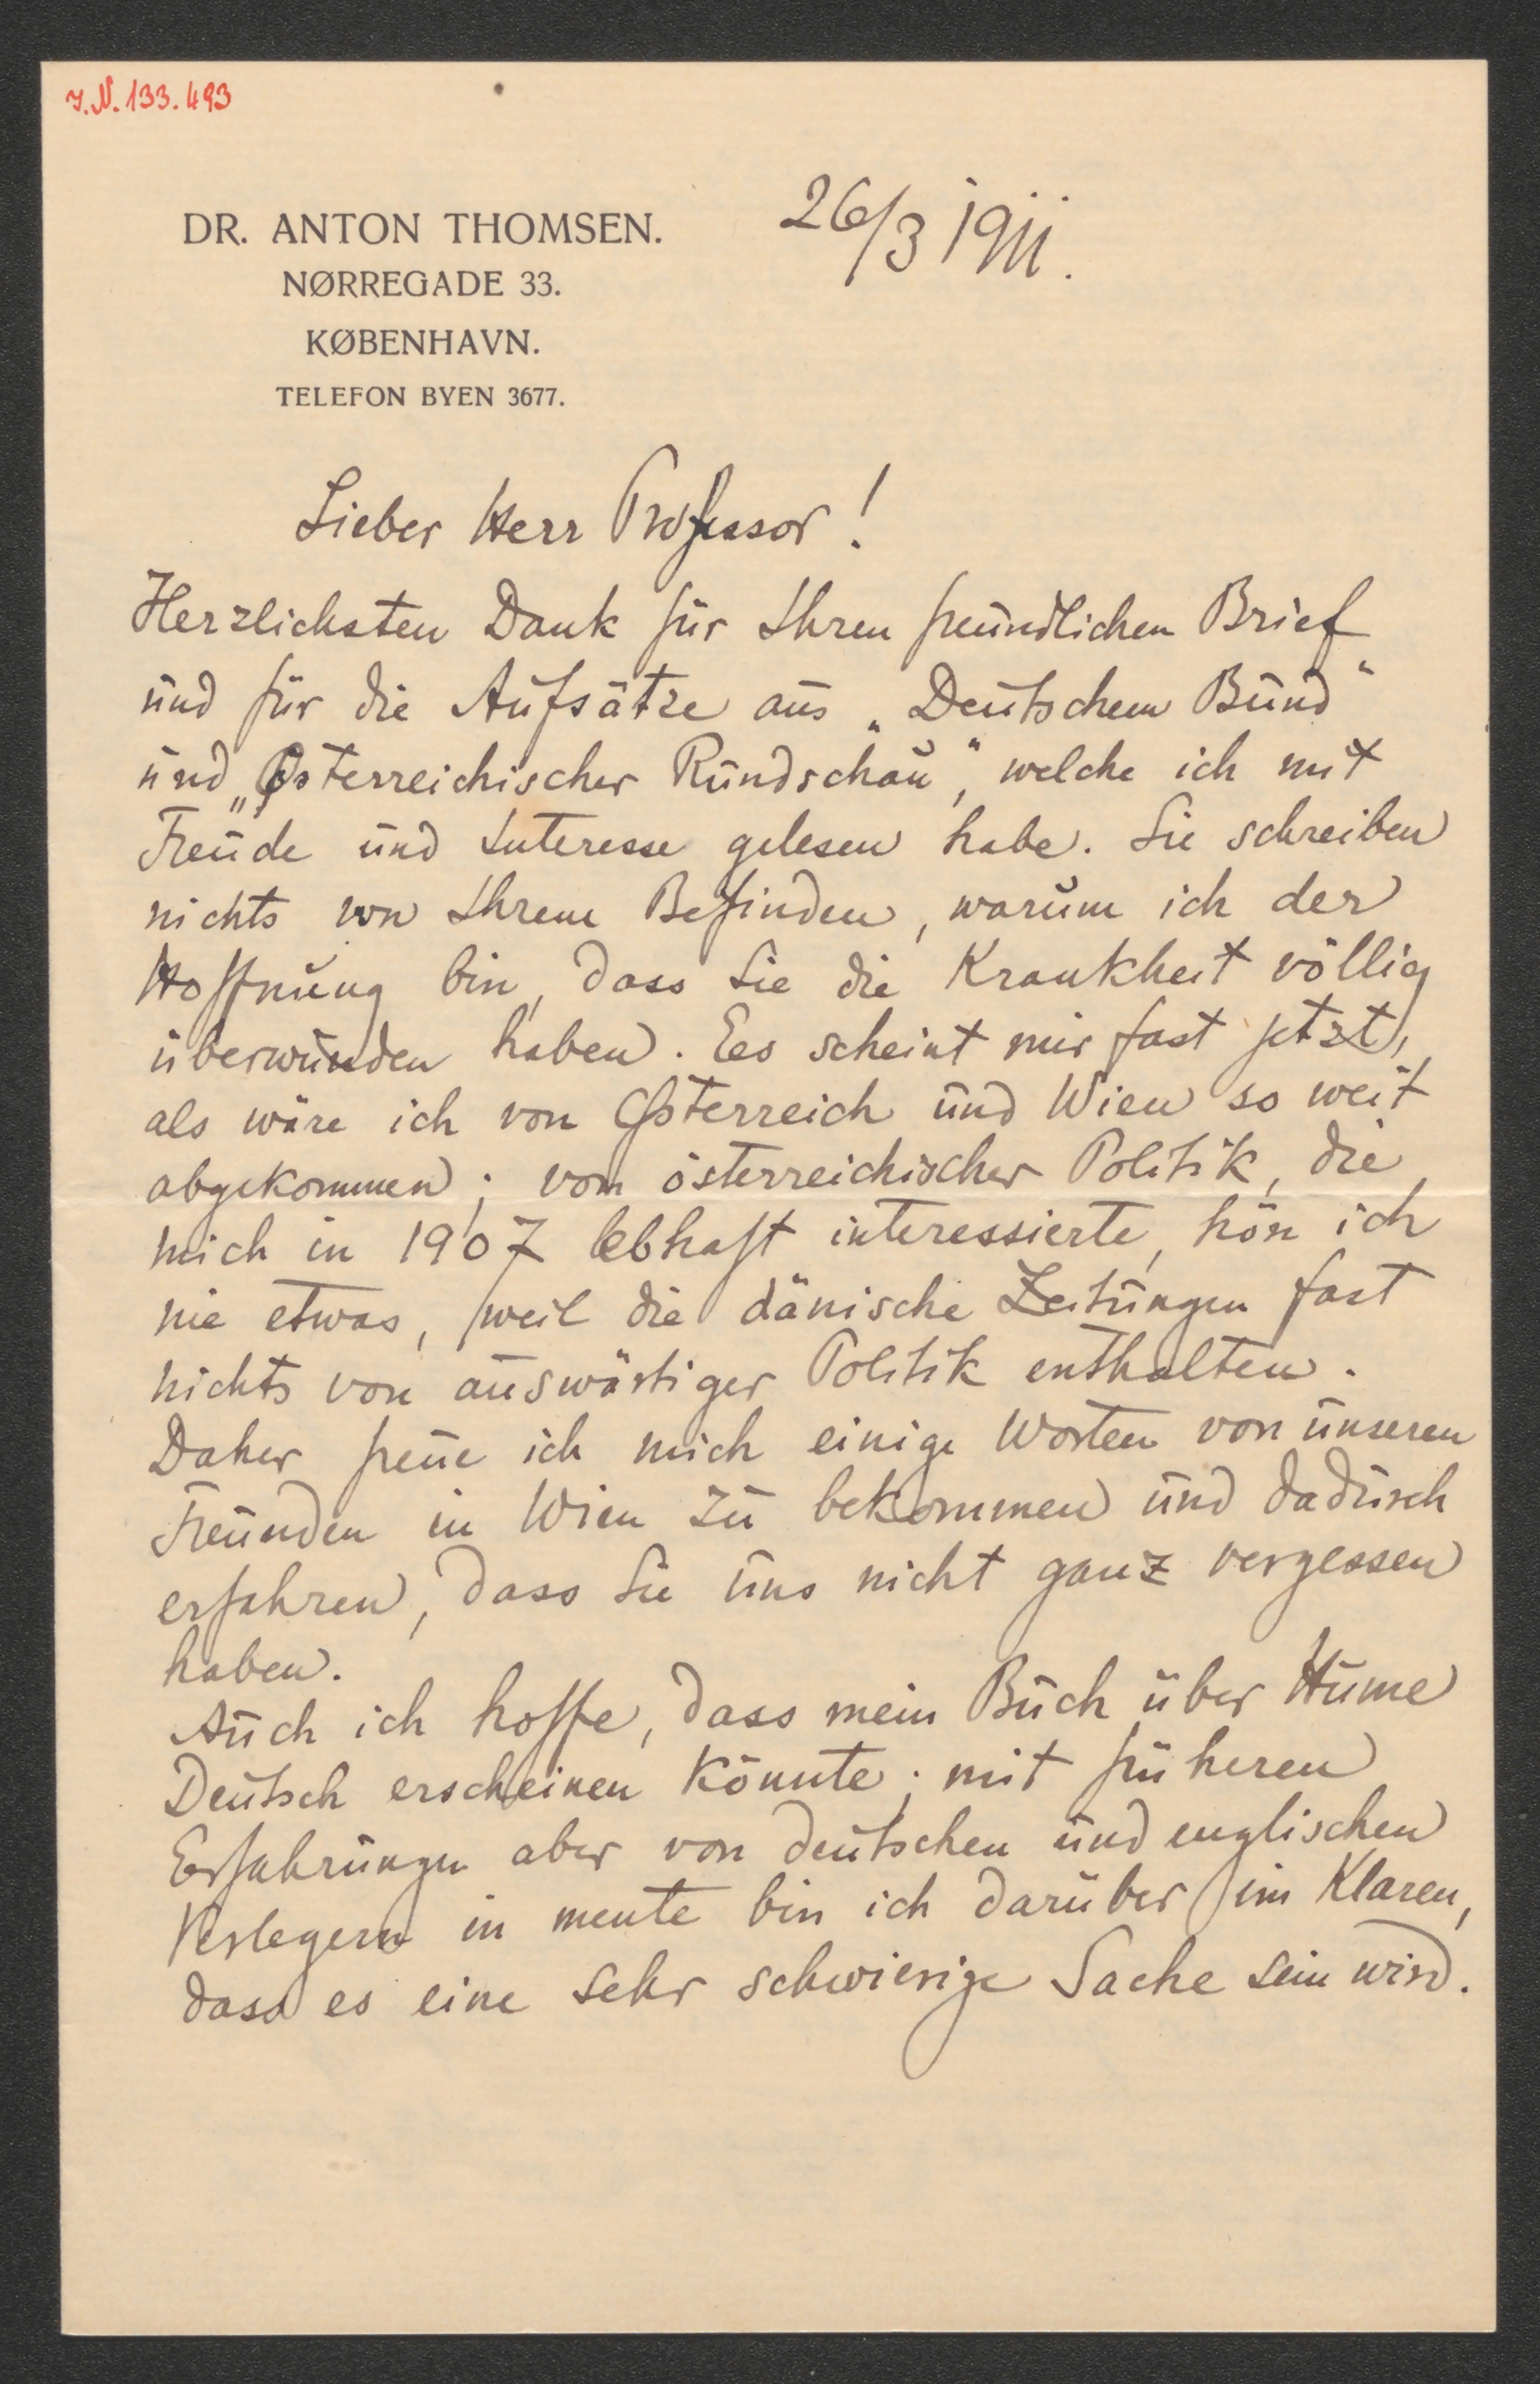 I.N. 133.493
DR. ANTON THOMSEN.
NØRREGADE 33.
KØBENHAVN.
TELEFON BYEN 3677.
26/3 1911.
Lieber Herr Professor!
Herzlichsten Dank für Ihren freundlichen Brief
und für die Aufsätze aus „Deutschem Bund“
und „Østerreichischer Rundschau“, welche ich mit
Freude und Interesse gelesen habe. Sie schreiben
nichts von Ihrem Befinden, warum ich der
Hoffnung bin, dass Sie die Krankheit völlig
überwunden haben. Ees scheint mir fast jetzt,
als wäre ich von Østerreich und Wien so weit
abgekommen; vom österreichischer Politik, die
mich in 1907 lebhaft interessierte, hör ich
nie etwas, weil die dänische Zeitungen fast
nichts von auswärtiger Politik enthalten.
Daher freue ich mich einige Worten von unseren
Freunden in Wien zu bekommen und dadurch
erfahren, dass Sie uns nicht ganz vergessen
haben.
Auch ich hoffe, dass mein Buch über Hume
Deutsch erscheinen könnte; mit früheren
Erfahrungen aber von deutschen und englischen
Verlegern in mente bin ich darüber im Klaren,
dass es eine sehr schwierige Sache sein wird.